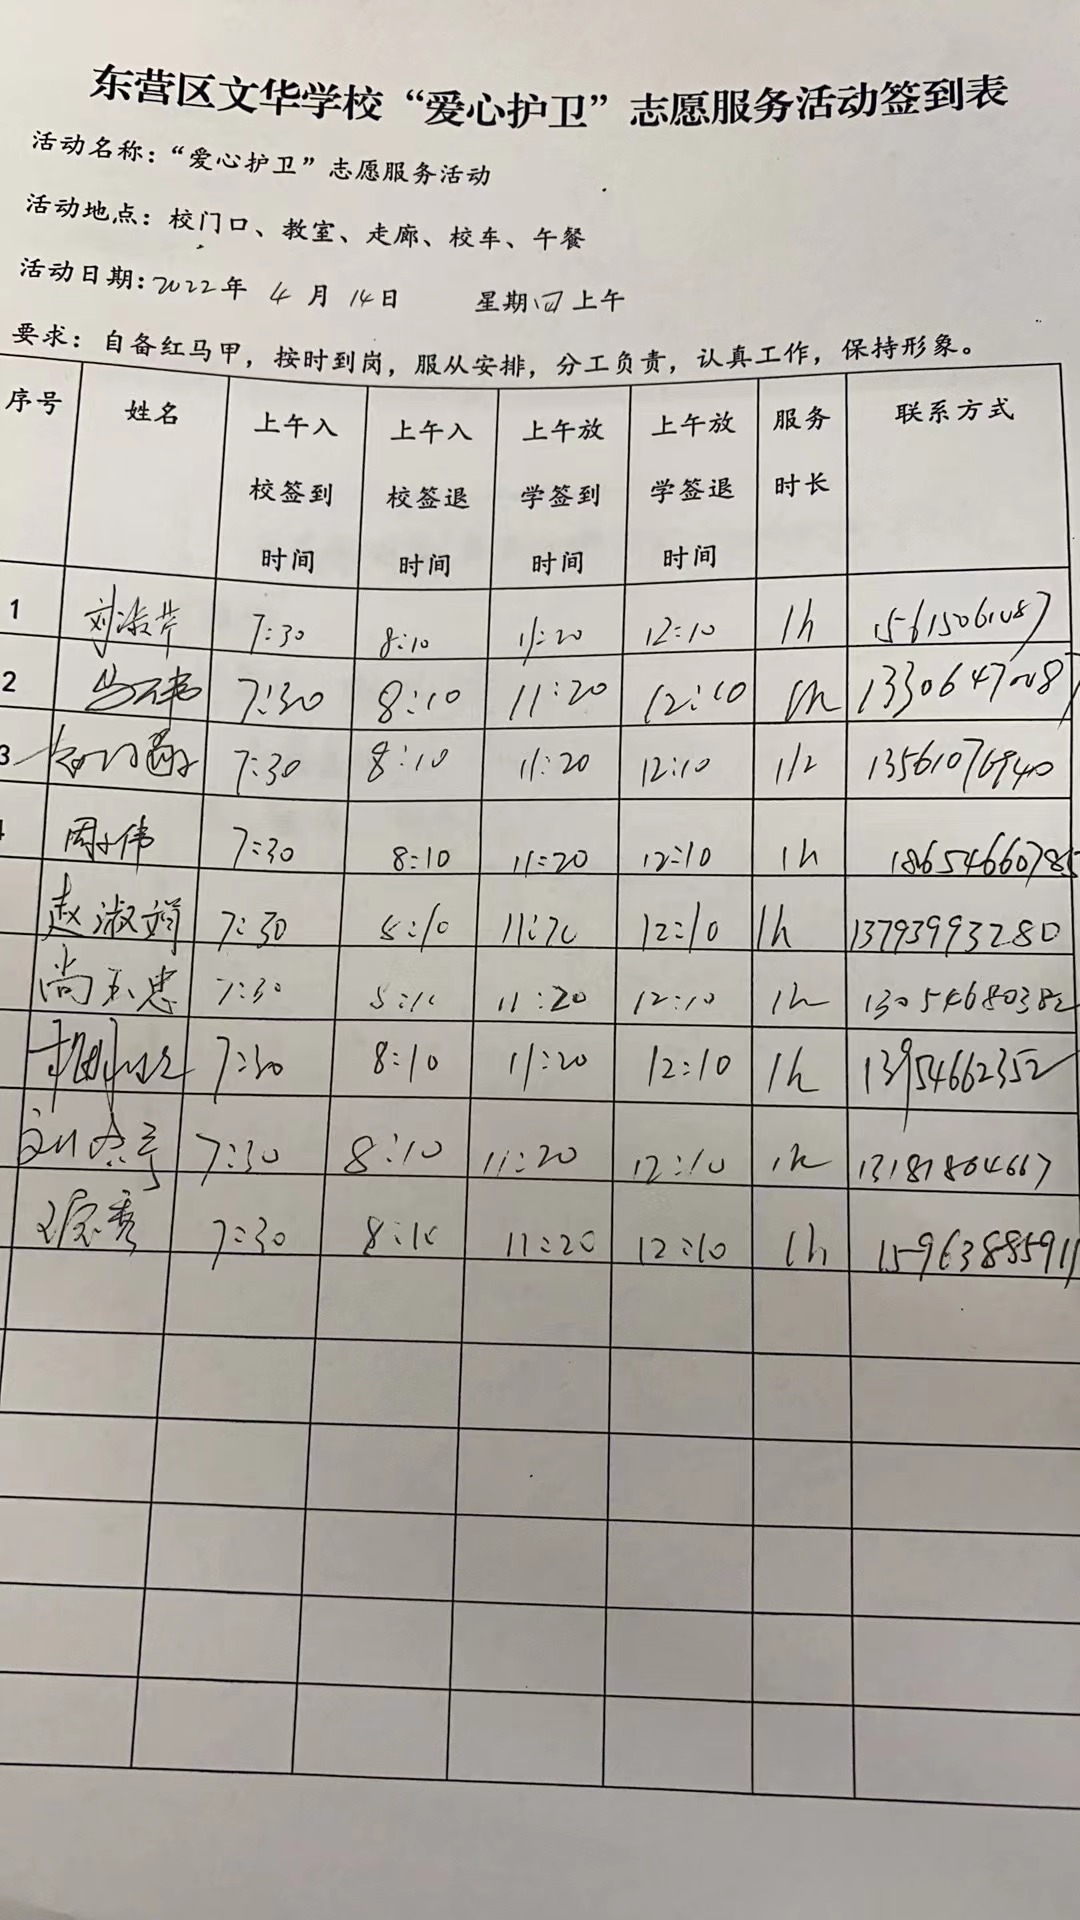 东营区文华学校“爱心护卫”志愿服务活动签到表
活动名称：“爱心护卫”志愿服务活动
活动地点：校门口、教室、走廊、校车、午餐
活动日期:2022年 4月 14日 星期四上午
要求：自备红马甲，按时到岗，服从安排，分工负责，认真工作，保持形象。
序号 姓名 上午入校签到时间 上午入校签退时间 上午放学签到时间 上午放学签退时间 服务时长 联系方式
1 刘淑芹 7:30 8:10 11:20 12:10 1h
2 7:30 8:10 11:20 12:10 1h
3 7:30 8:10 11:20 12:10 1h 13561076940
周子伟 7:30 8:10 11:20 12:10 1h 18654660785
赵淑娟 7:30 8:10 11:20 12:10 1h 13793993280
尚玉忠 7:30 8:10 11:20 12:10 1h 13054680382
7:30 8:10 11:20 12:10 1h 13954662352
7:30 8:10 11:20 12:10 1h 13181864667
7:30 8:10 11:20 12:10 1h 15963885911